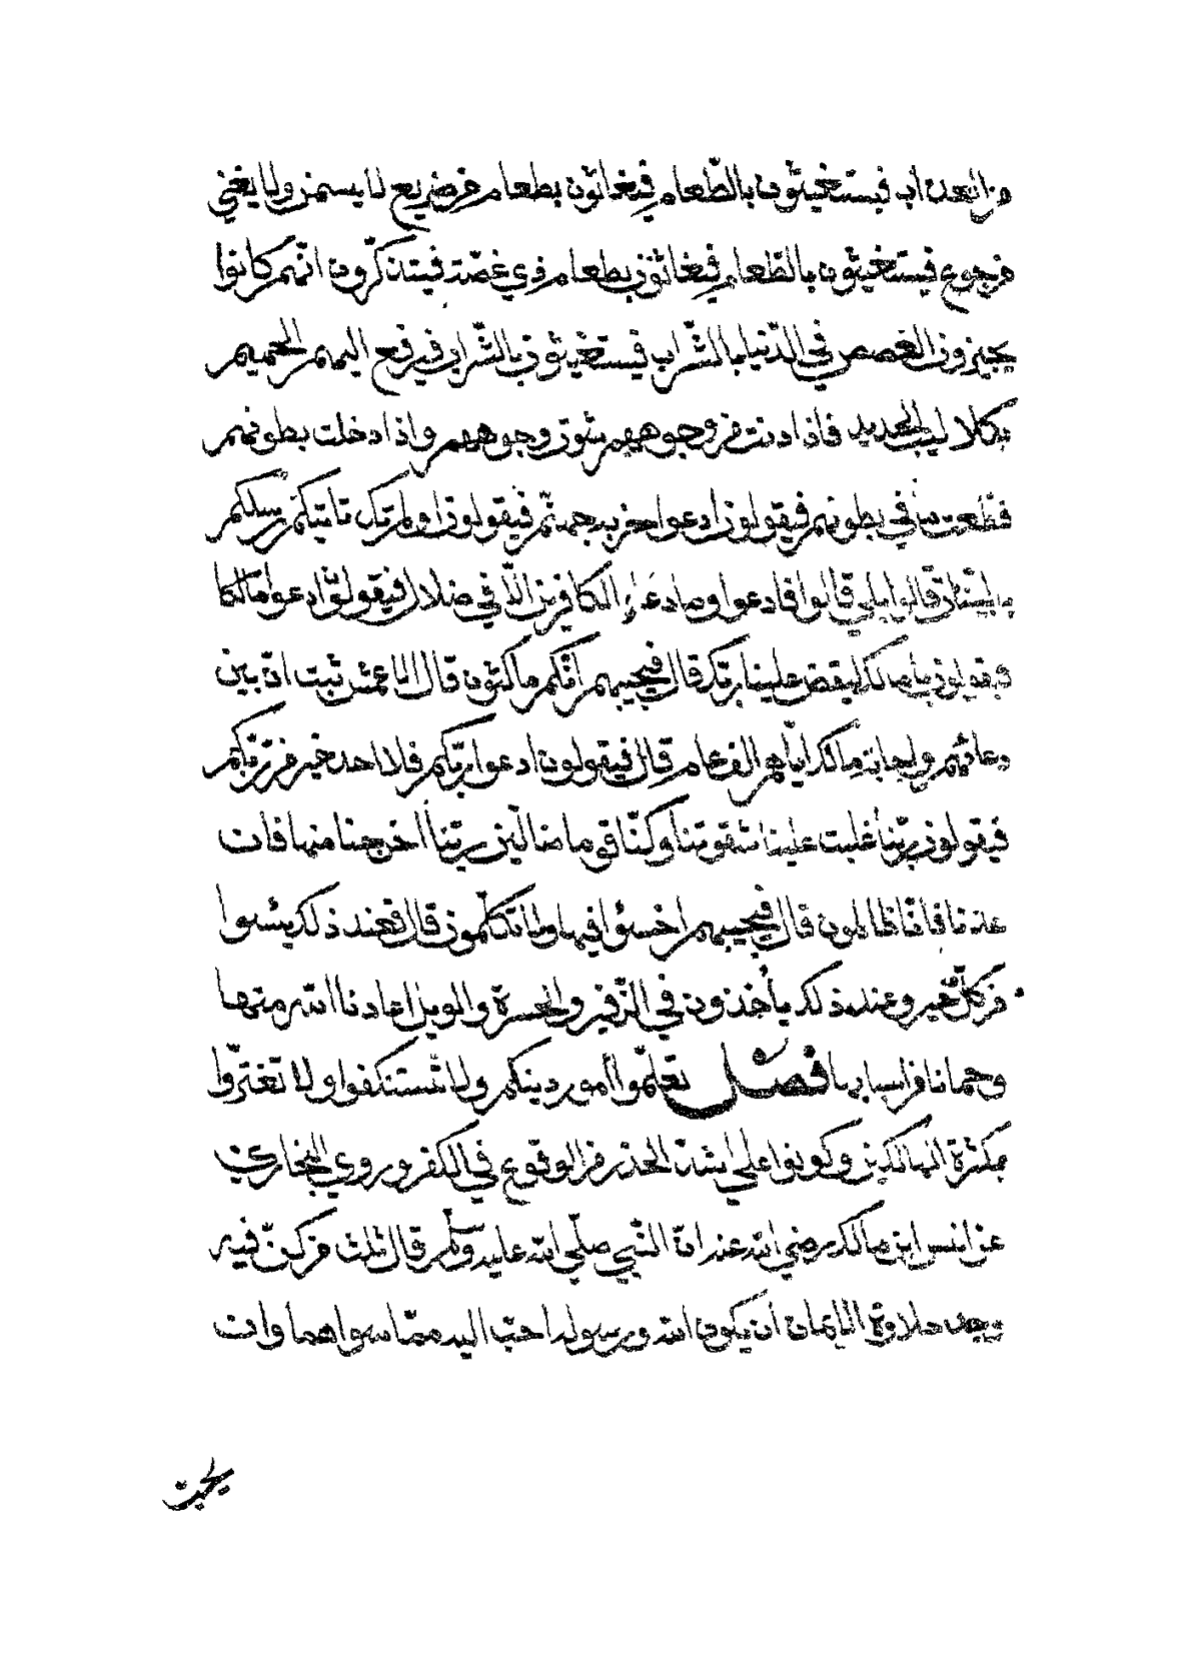 من العذاب فيستغيثون بالطّعام فيغاثون بطعام من ضريع لا يسمن ولا يغني
من جوع فيستغيثون بالطّعام فيغاثون بطعام ذي غصّة فيتذكّرون انّهم كانوا
يجيزون الغصص في الدّنيا بالشّراب فيستغيثون بالشّراب فيرفع اليهم الحميم
بكلاليب الحديد فاذا دنت من وجوههم شوت وجوههم واذا دخلت بطونهم
قطّعت ما في بطونهم فيقولون ادعوا خزنة جهنّم فيقولون اولم تك تاتيكم رسلكم
بالبيّنات قالوا بلى قالوا فادعوا وما دعاء الكافرين الّا في ضلال فيقولون ادعوا مالكا
فيقولون يا مالك ليقض علينا ربّك قال فيجيبهم انّكم ماكثون قال الاعمش ثبت انّ بين
دعائهم واجابة مالك ايّاهم الف عام قال فيقولون ادعوا ربّكم فلا احد خير من ربّكم
فيقولون ربّنا غلبت علينا شقوتنا وكنّا قوما ضالّين ربّنا اخرجنا منها فان
عدنا فانّا ظالمون قال فيجيبهم اخسئوا فيها ولا تكلّمون قال فعند ذلك يئسوا
من كلّ خير وعند ذلك يأخذون في الزّفير والحسرة والويل اعاذنا الله منها
وحمانا من اسبابها فصل تعلّموا أمور دينكم ولا تستنكفوا ولا تغترّوا
بكثرة الهالكين وكونوا على اشدّ الحذر من الوقوع في الكفر وروى البخاري
عن انس ابن مالك رضي الله عنه انّ النّبي صلّى الله عليه وسلّم قال ثلث من كنّ فيه
وجد حلاوة الايمان ان يكون الله ورسوله احبّ اليه ممّا سواهما وان
يحبّ